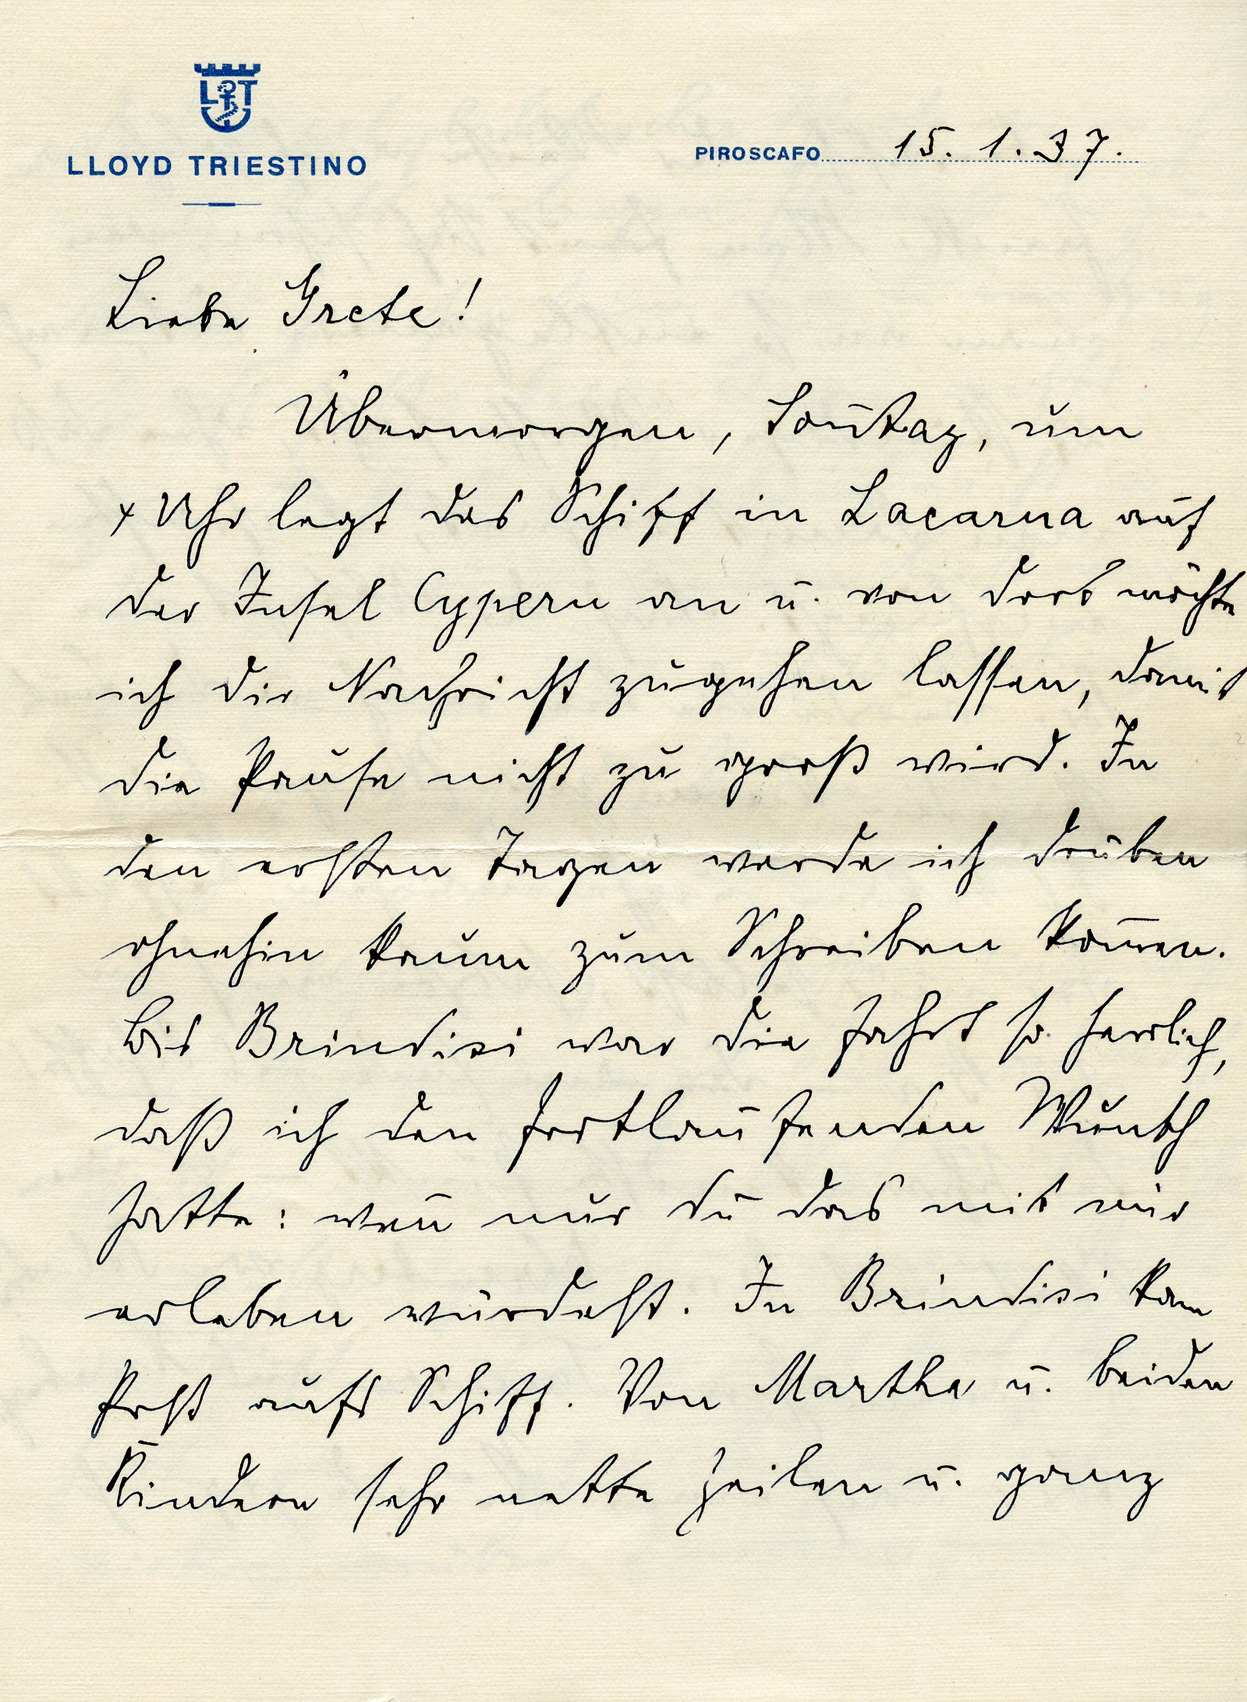 LT
LLOYD TRIESTINO
PIROSCAFO 15. 1. 37.
Liebe Grete!
Übermorgen, Soñtag, um
Uhr legt das Schiff in Lacarna auf
der Insel Cypern an u. von dort möchte
ich dir Nachricht zugehen lassen, damit
die Pause nicht zu groß wird. In
den ersten Tagen werde ich drüben
ohnehin kaum zum Schreiben kom̄en.
Bis Brindisi war die Fahrt so herrlich,
daß ich den fortlaufenden Wunsch
hatte: weñ nur du das mit mir
erleben würdest. In Brindisi kam
Post aufs Schiff. Von Martha u. beiden
Kindern sehr nette Zeilen u. ganz